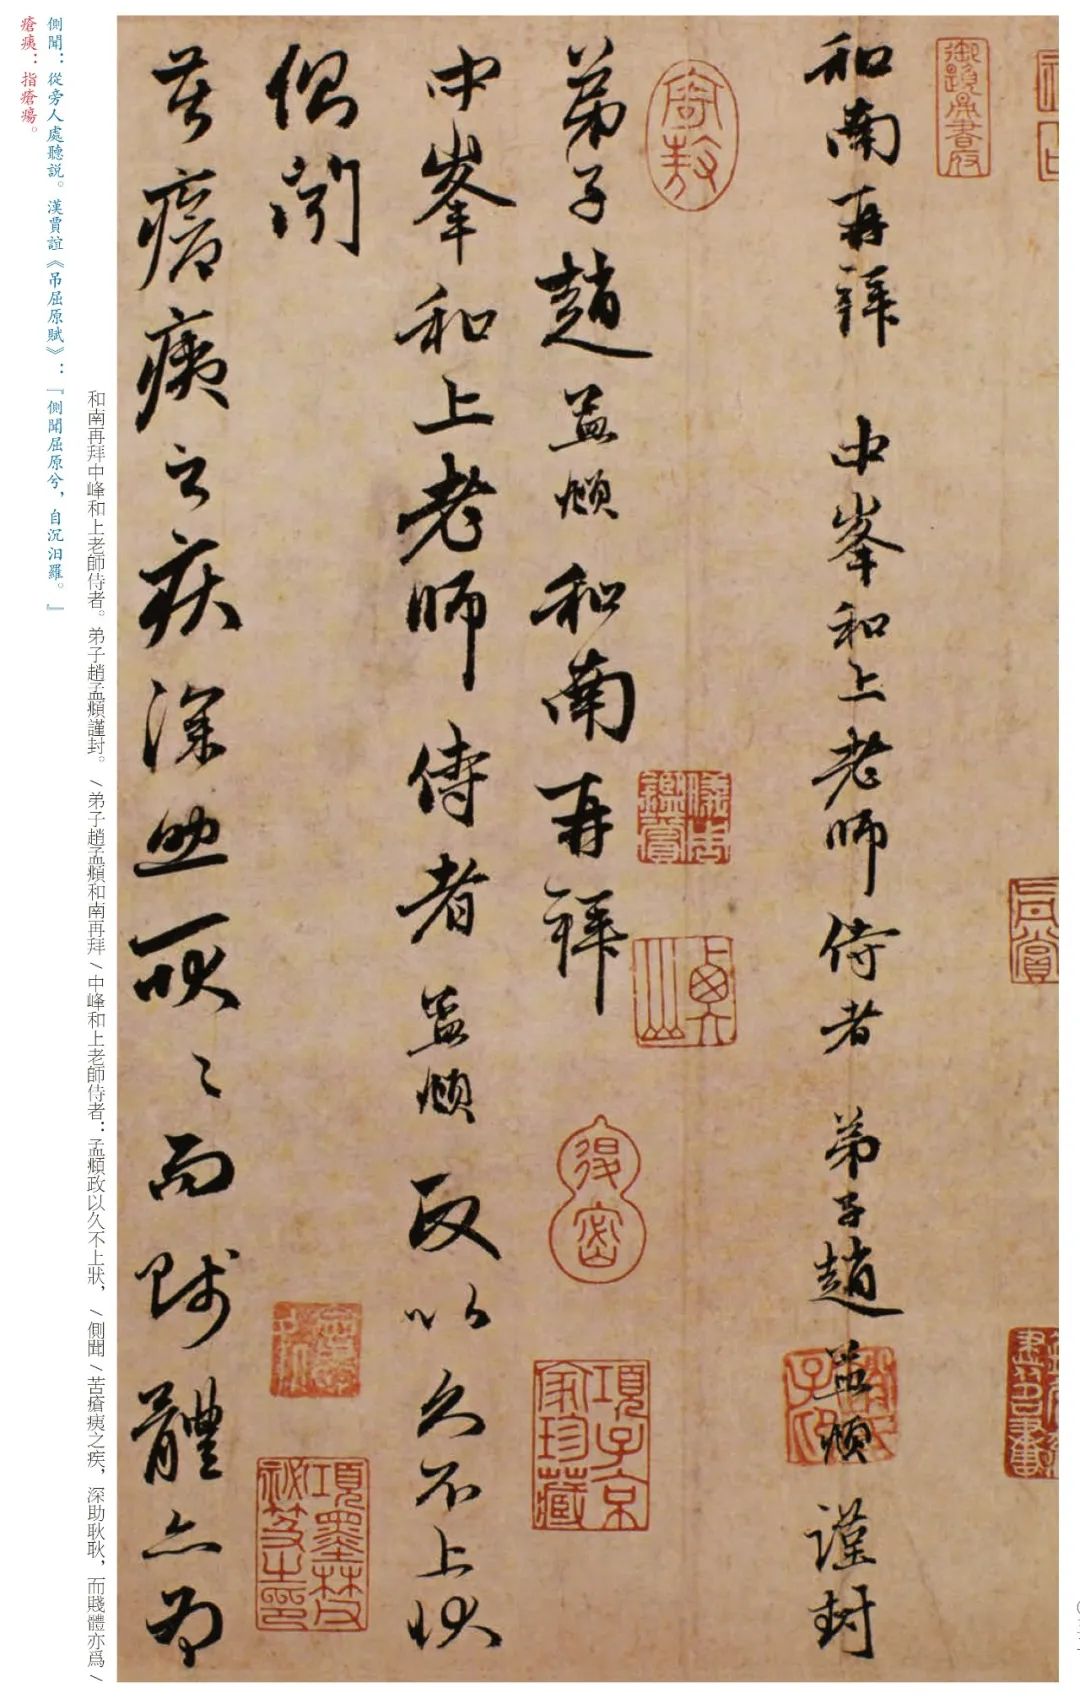 和南再拜 中峯和上老師侍者 弟子趙孟頫謹封
弟子趙孟頫和南再拜
中峯和上老師侍者孟頫政以久不上狀
側聞
苦瘡痍之疾深助耿〻而賤體亦爲
項子京家珍藏
項墨林祕笈之印
和南再拜中峰和上老師侍者。弟子趙孟頫謹封。/弟子趙孟頫和南再拜/中峰和上老師侍者：孟頫政以久不上狀，/側聞/苦瘡痍之疾，深助耿耿，而賤體亦爲/
側聞：從旁人處聽説。漢賈誼《吊屈原賦》：『側聞屈原兮，自沉汨羅。』
瘡痍：指瘡瘍。